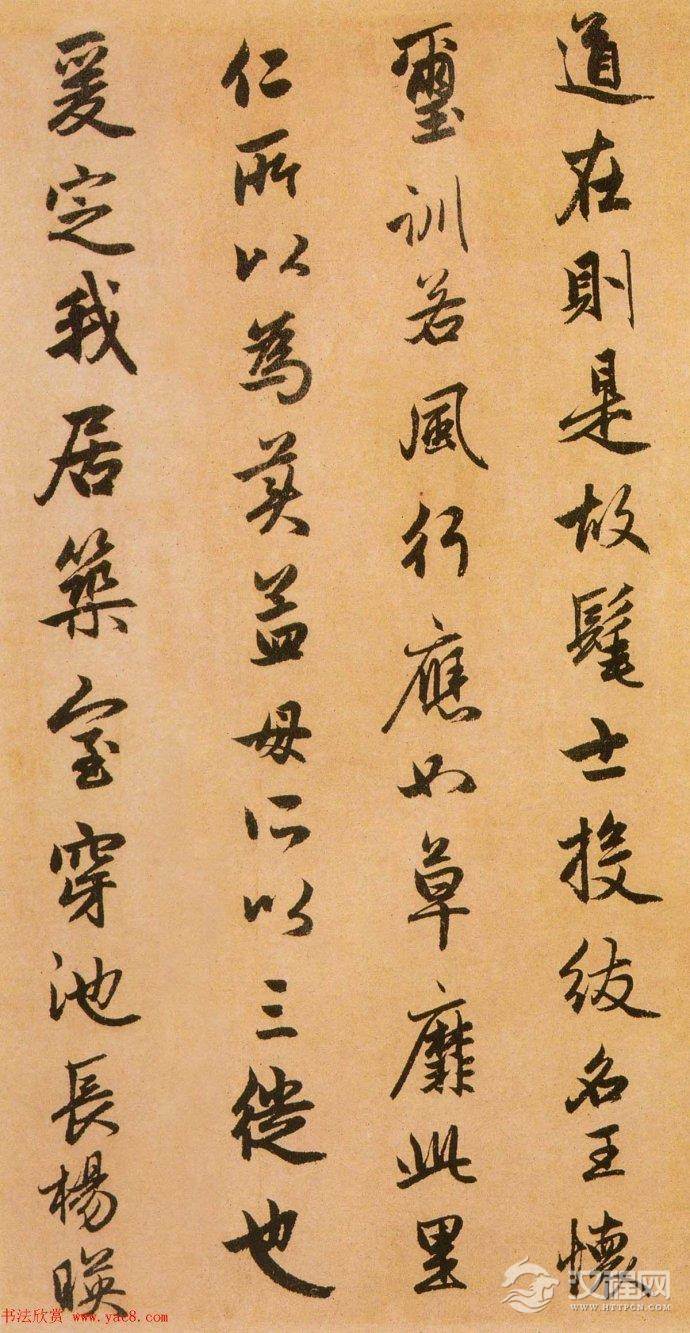 道在則是故髦士投紱名王懷
璽訓若風行應如草靡此里
仁所以為美孟母所以三徙也
爰定我居築室穿池長楊暎
书法欣赏 www.yac8.com
汉程网
WWW.HTTPCN.COM